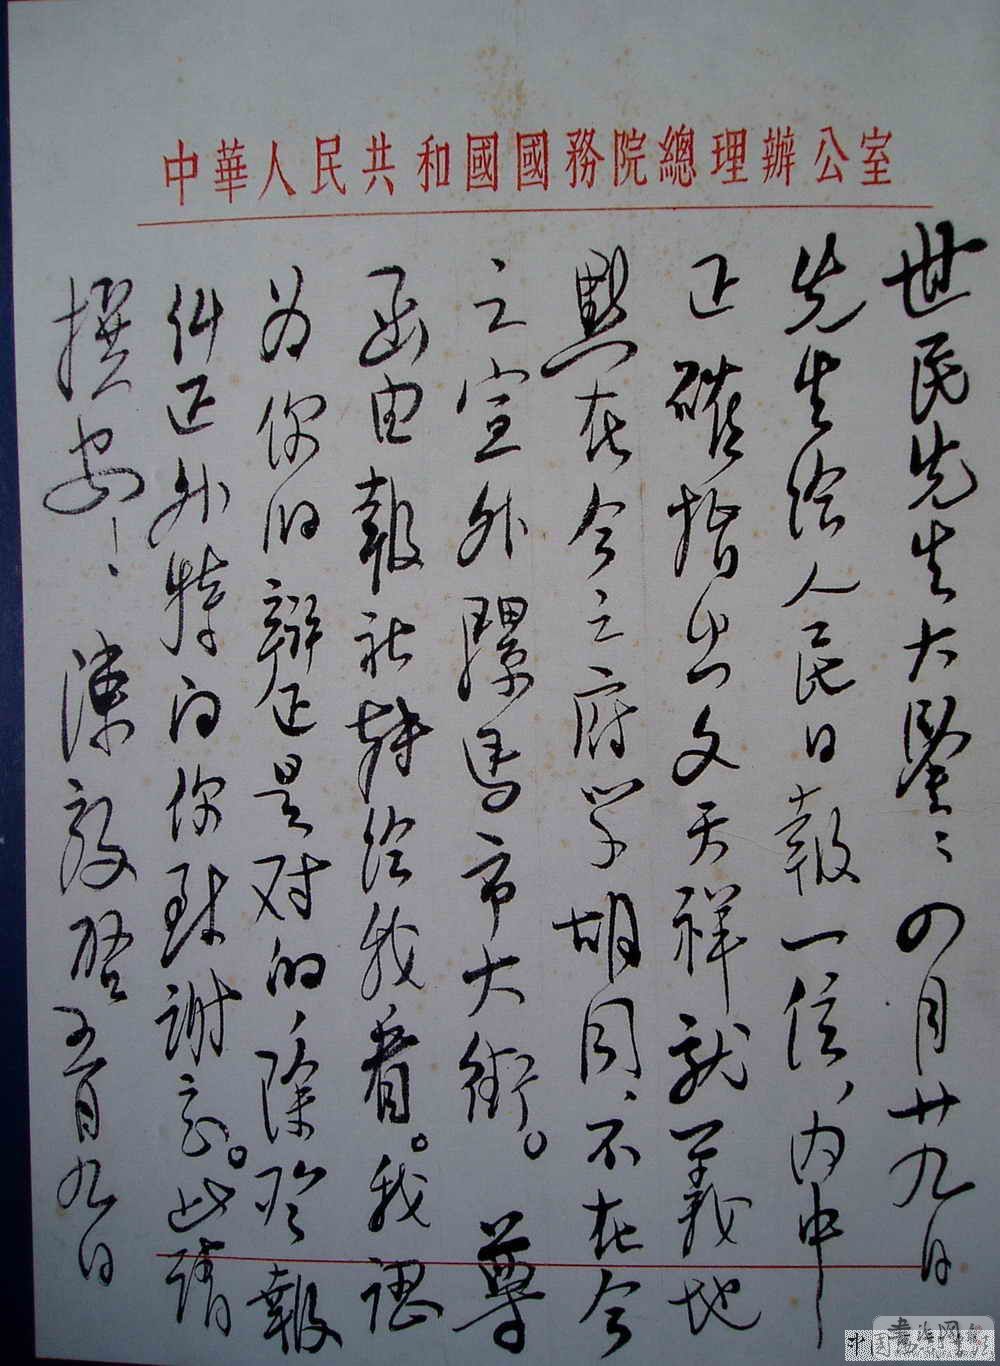 中華人民共和國國務院總理辦公室
世民先生大鑒:四月廿九日
先生給人民日報一信、內中
正確指出文天祥就義地
點在今之府学胡同、不在今
之宣外騾馬市大街。尊
函由報社轉給我看。我認
为你的辯正是对的、除吩報
糾正外特向你致謝意。此請
撰安! 陳毅啓五月九日
中国書法
書法网